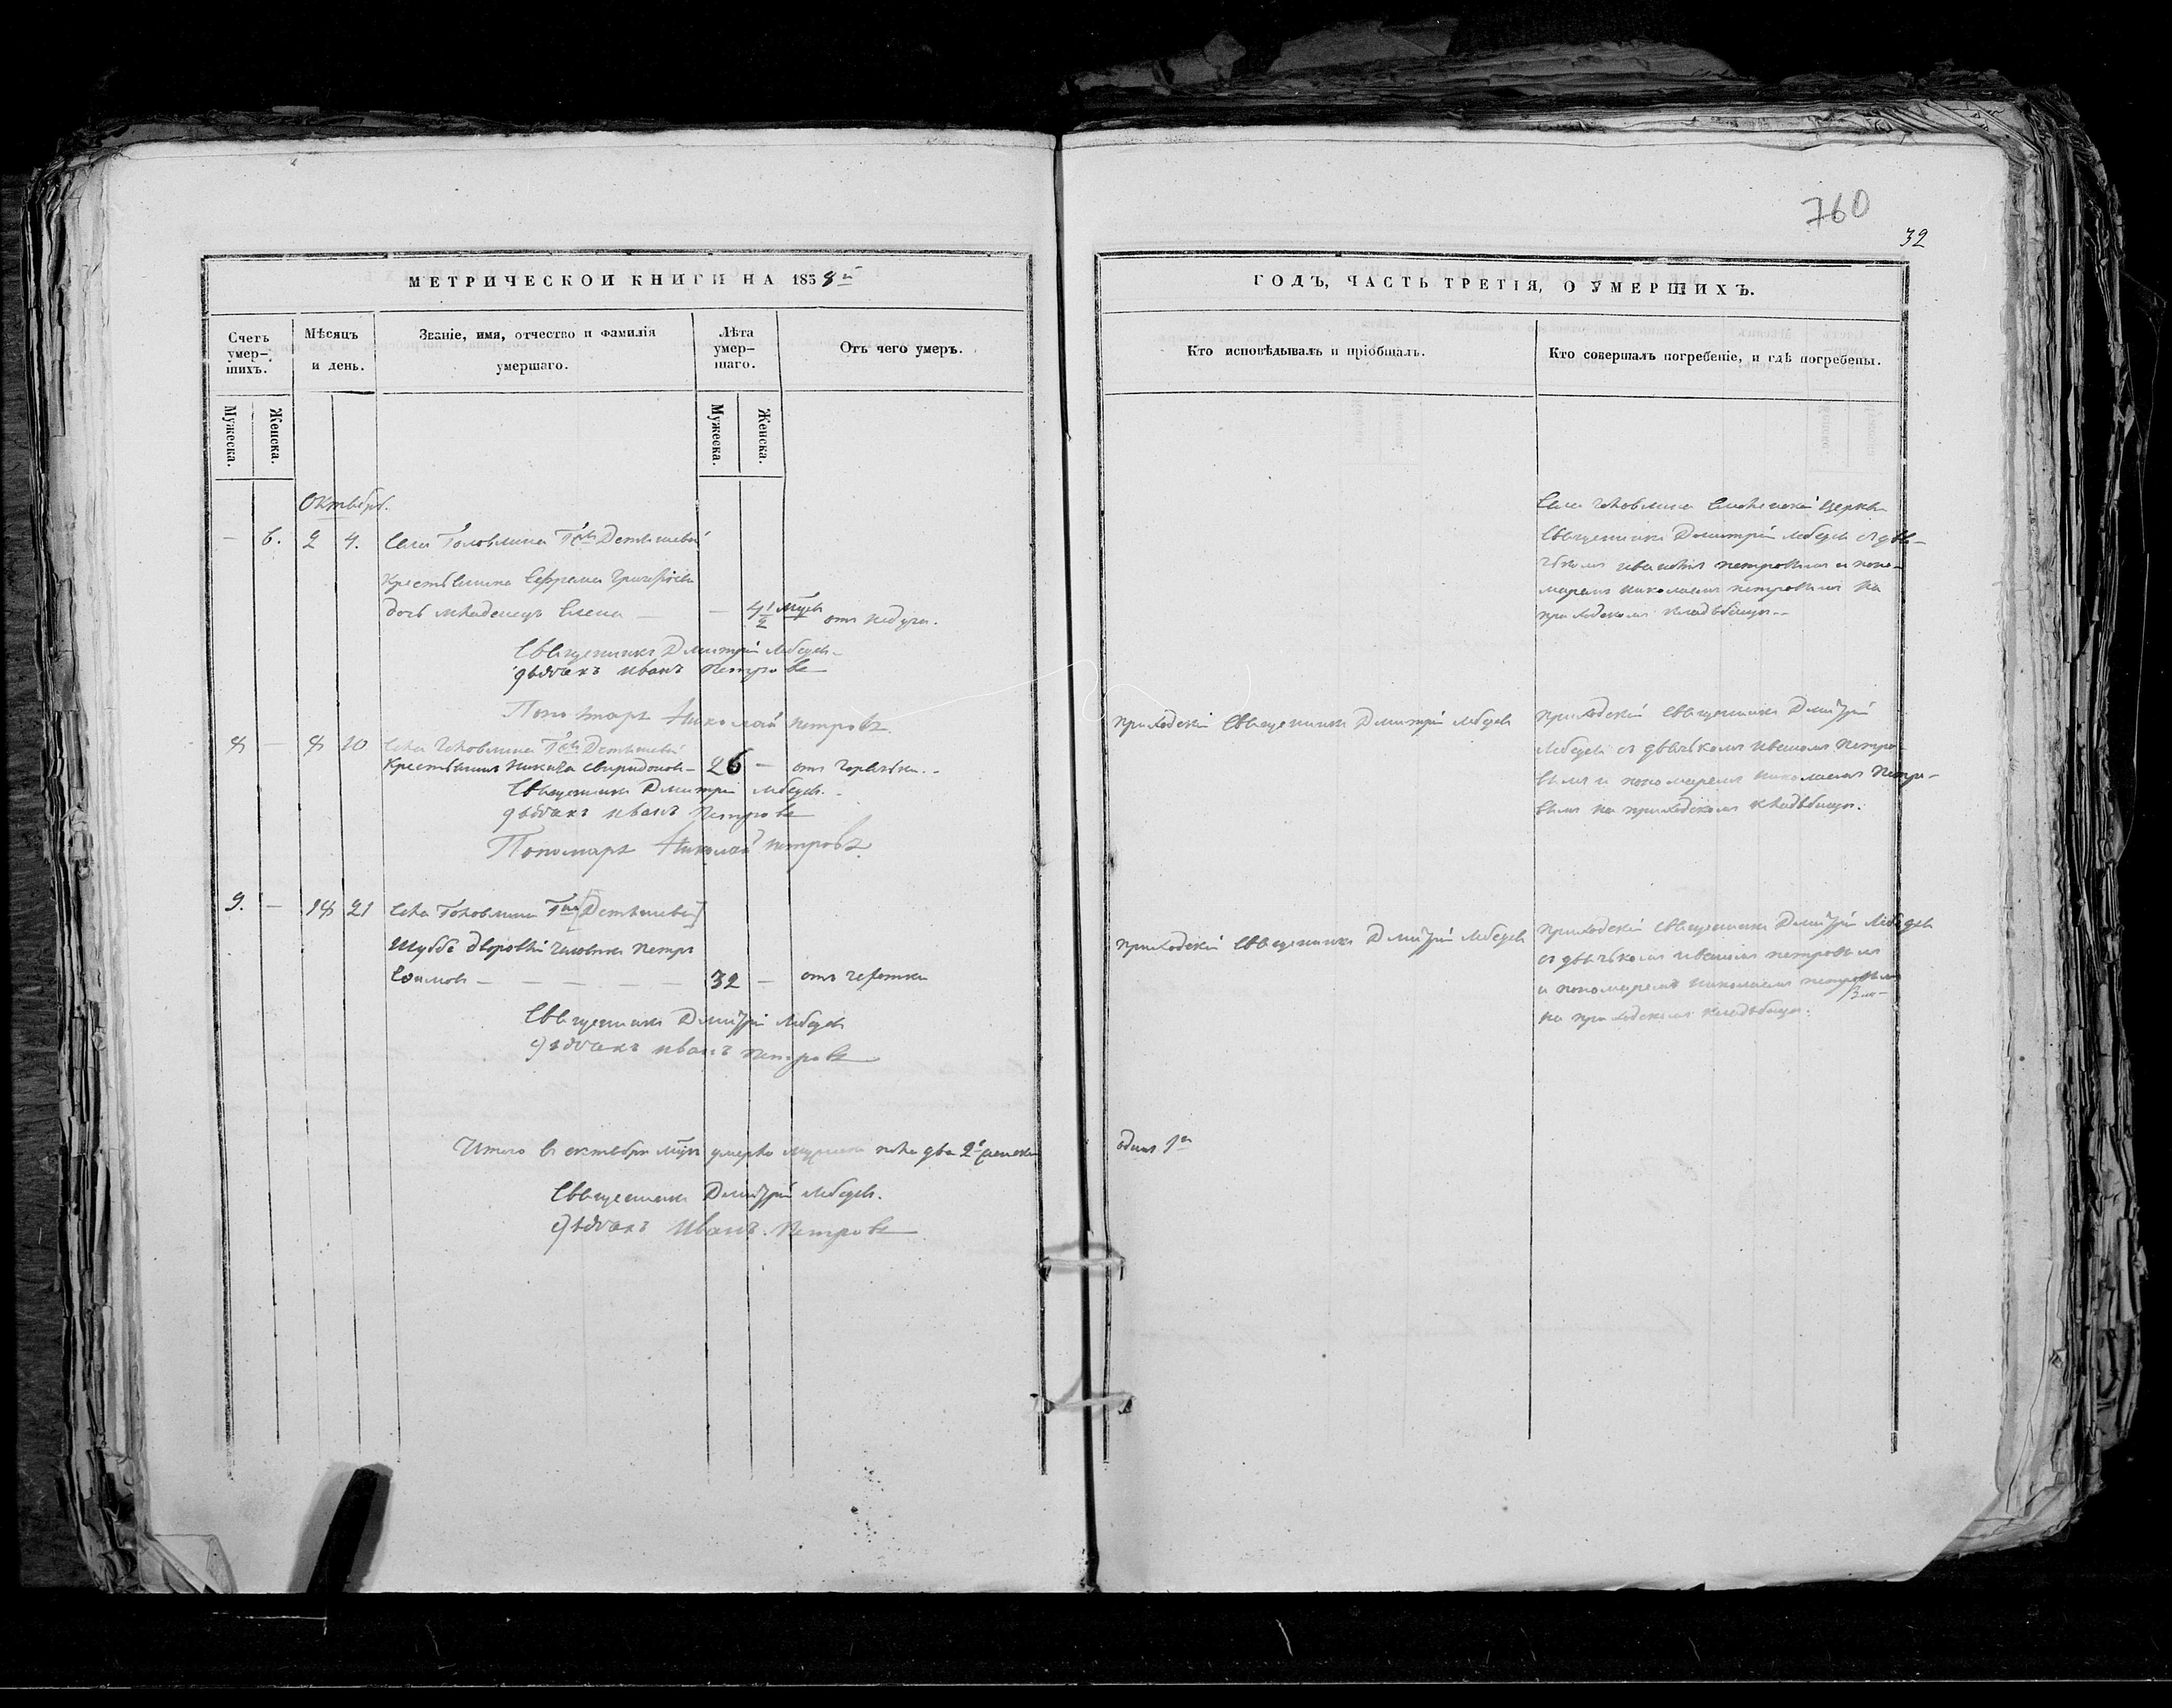 760
32
МЕТРИЧЕСКОЙ КНИГИ НА 1858й
ГОДЪ, ЧАСТЬ ТРЕТІЯ, О УМЕРШИХЪ.
Счетъ умер-шихъ.
Мѣсяцъ и день.
Званіе, имя, отчество и фамилія умершаго.
Лѣта умер-шаго.
Отъ чего умеръ.
Кто исповѣдывалъ и пріобщалъ.
Кто совершалъ погребеніе, и гдѣ погребены.
Мужеска.
Женска.
Мужеска.
Женска.
Октябрь.
— 6. 2 4. Села Головлина
Крестьянина Ефрема Григорьева
дочь младенецъ Елена — — 4 1/2 мцъ отъ недуга.
Священникъ Дмитрій Лебедевъ
дьячекъ Иванъ Петровъ
Пономарь Николай Петровъ
Села Головлина церкви
Священникъ Дмитрій Лебедевъ съ дья-
чкомъ Иваномъ Петровымъ и поно-
маремъ Николаемъ Петровымъ на
приходскомъ кладбищѣ
8 — 8 10 Села Головлина
Крестьянинъ Никита Спиридоновъ — 26 — отъ горячки.
Священникъ Дмитрій Лебедевъ.
дьячекъ Иванъ Петровъ
Пономарь Николай Петровъ
Приходскій Священникъ Дмитрій Лебедевъ
Приходскій Священникъ Дмитрій
Лебедевъ съ дьячкомъ Иваномъ Петро-
вымъ и пономаремъ Николаемъ Петро-
вымъ на приходскомъ кладбищѣ.
9. — 18 21 Села Головлина
дворовый человѣкъ Петръ
— 32 — отъ чахотки
Священникъ Дмитрій Лебедевъ
Дьячекъ Иванъ Петровъ
Приходскій Священникъ Дмитрій Лебедевъ
Приходскій Священникъ Дмитрій Лебедевъ
съ дьячкомъ Иваномъ Петровымъ
и пономаремъ Николаемъ Петровымъ
на приходскомъ кладбищѣ.
Итого въ октябрѣ мцѣ умерло мужеска пола два 2 женска
одинъ 1
Священникъ Дмитрій Лебедевъ.
Дьячекъ Иванъ Петровъ